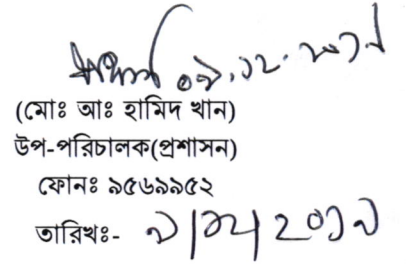 ০৯.১২.২০১৯
(মোঃ আঃ হামিদ খান)
উপ-পরিচালক(প্রশাসন)
ফোনঃ ৯৫৬৯৯৫২
তারিখঃ- ৯/১২/২০১৯